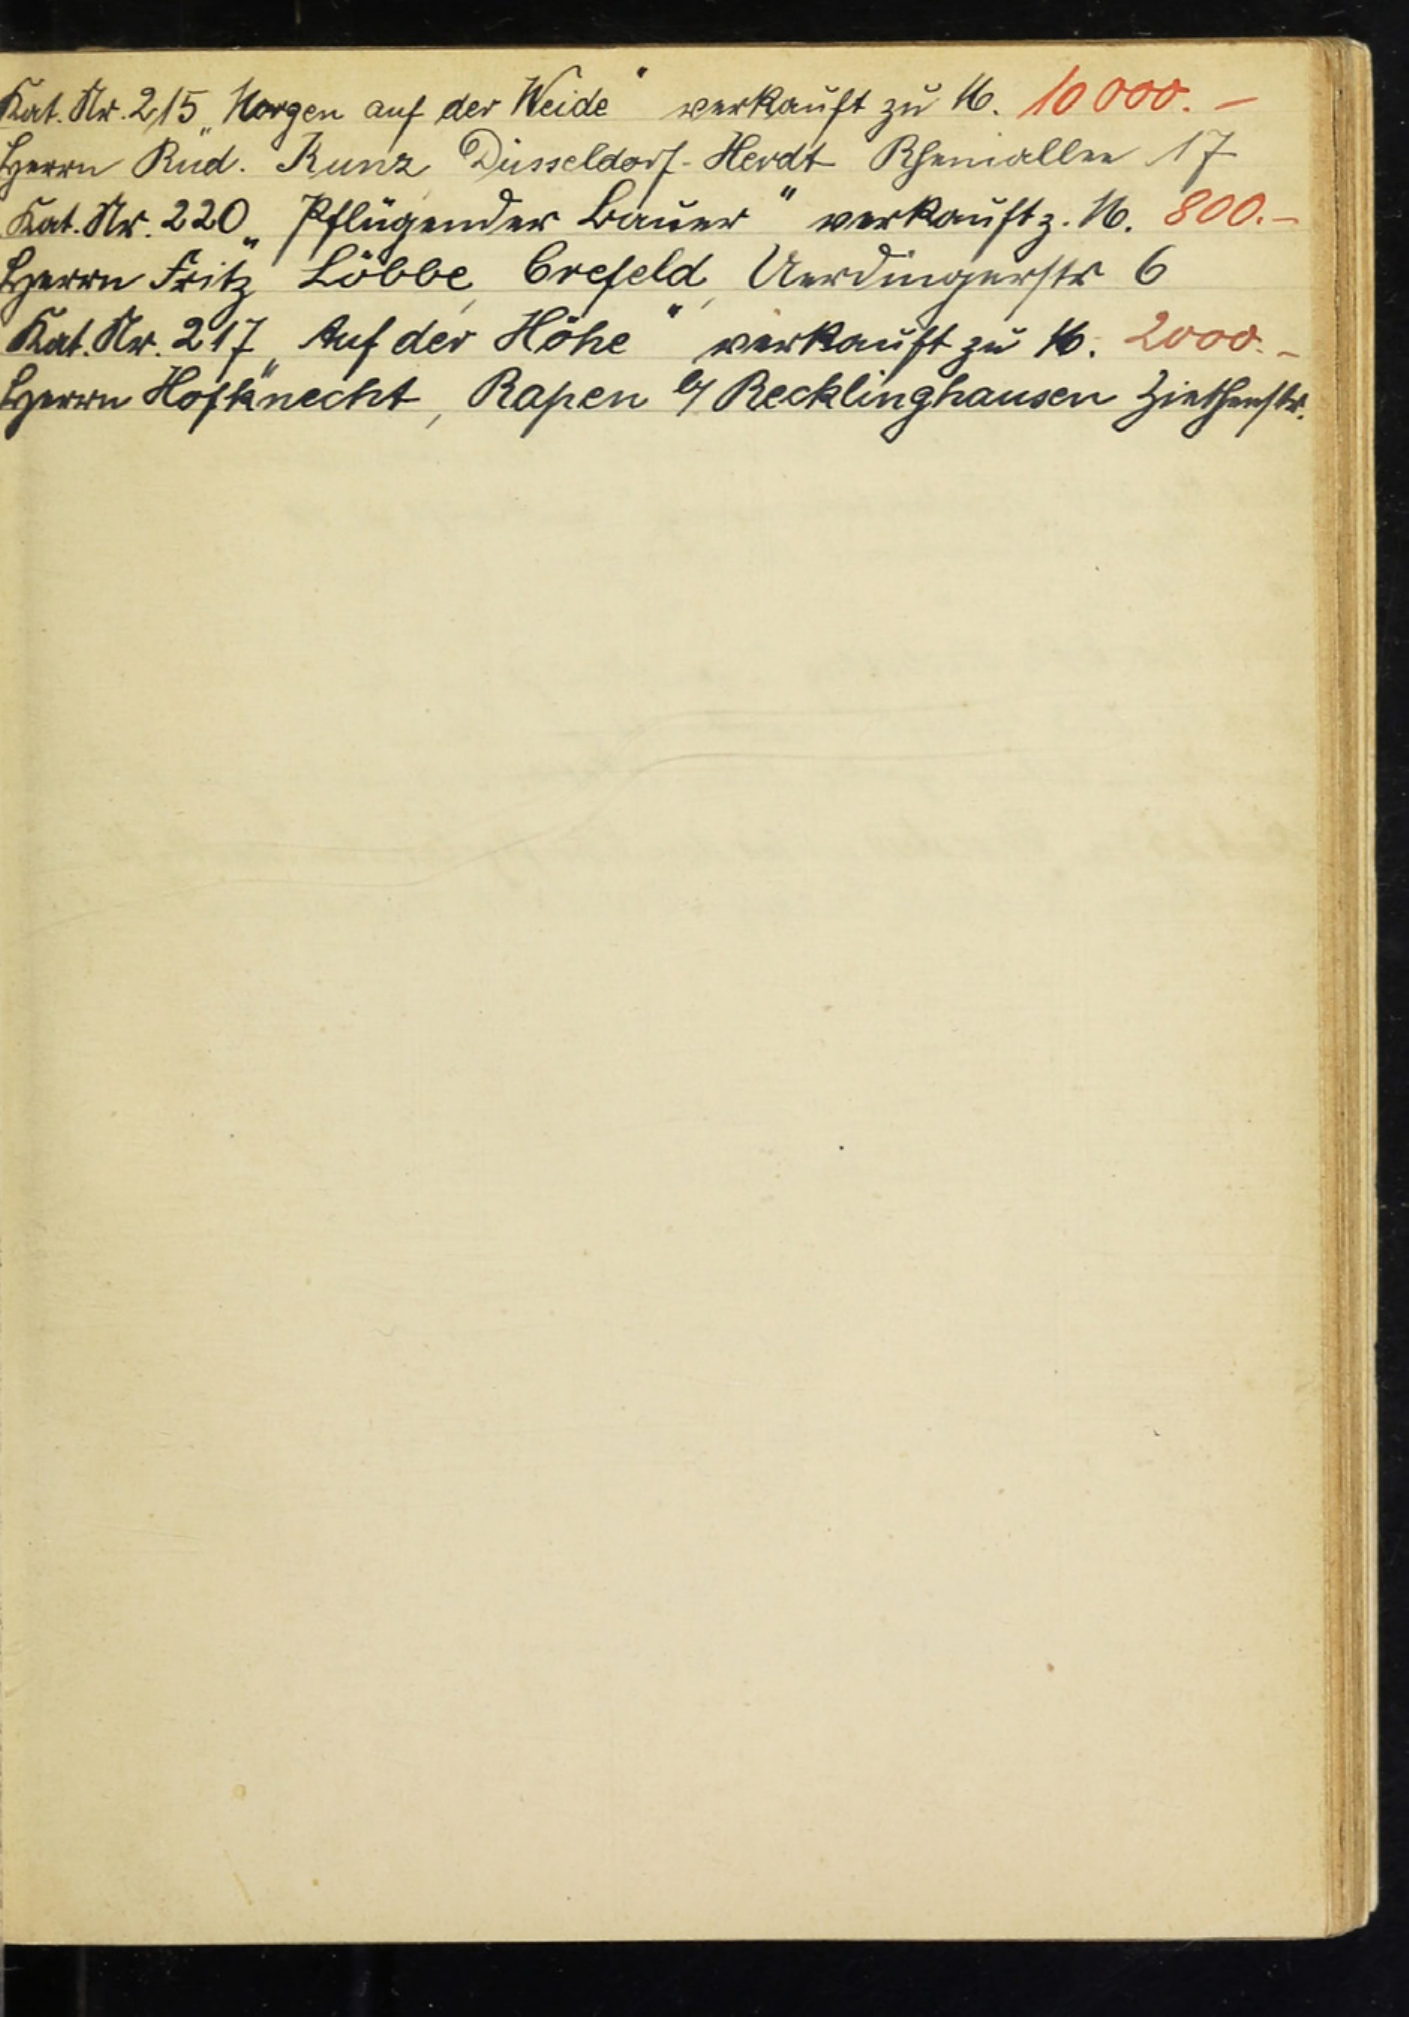 Kat. Nr. 215 „Morgen auf der Weide" verkauft zu M. 10000.—
Herrn Rud. Kunz, Düsseldorf-Herdt Rheniallee 17
Kat. Nr. 220 „Pflügender Bauer" verkauft z. M. 800.—
Herrn Fritz Löbbe, Crefeld, Uerdingerstr 6
Kat. Nr. 217 „Auf der Höhe" verkauft zu M. 2000.—
Herrn Hofknecht, Rapen b/ Recklinghausen Ziethenstr.